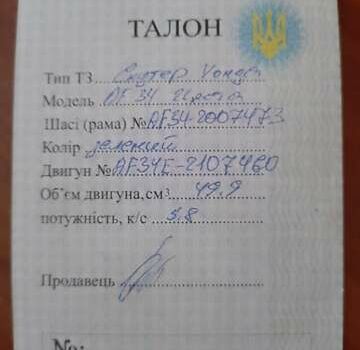 ТАЛОН
Тип ТЗ Скутер Хонда
Модель AF 34
Шасі (рама) № AF34-2007473
Колір зелений
Двигун № AF34E-2107460
Об'єм двигуна,см³ 49.9
потужність, к/с 5.8
Продавець
№: